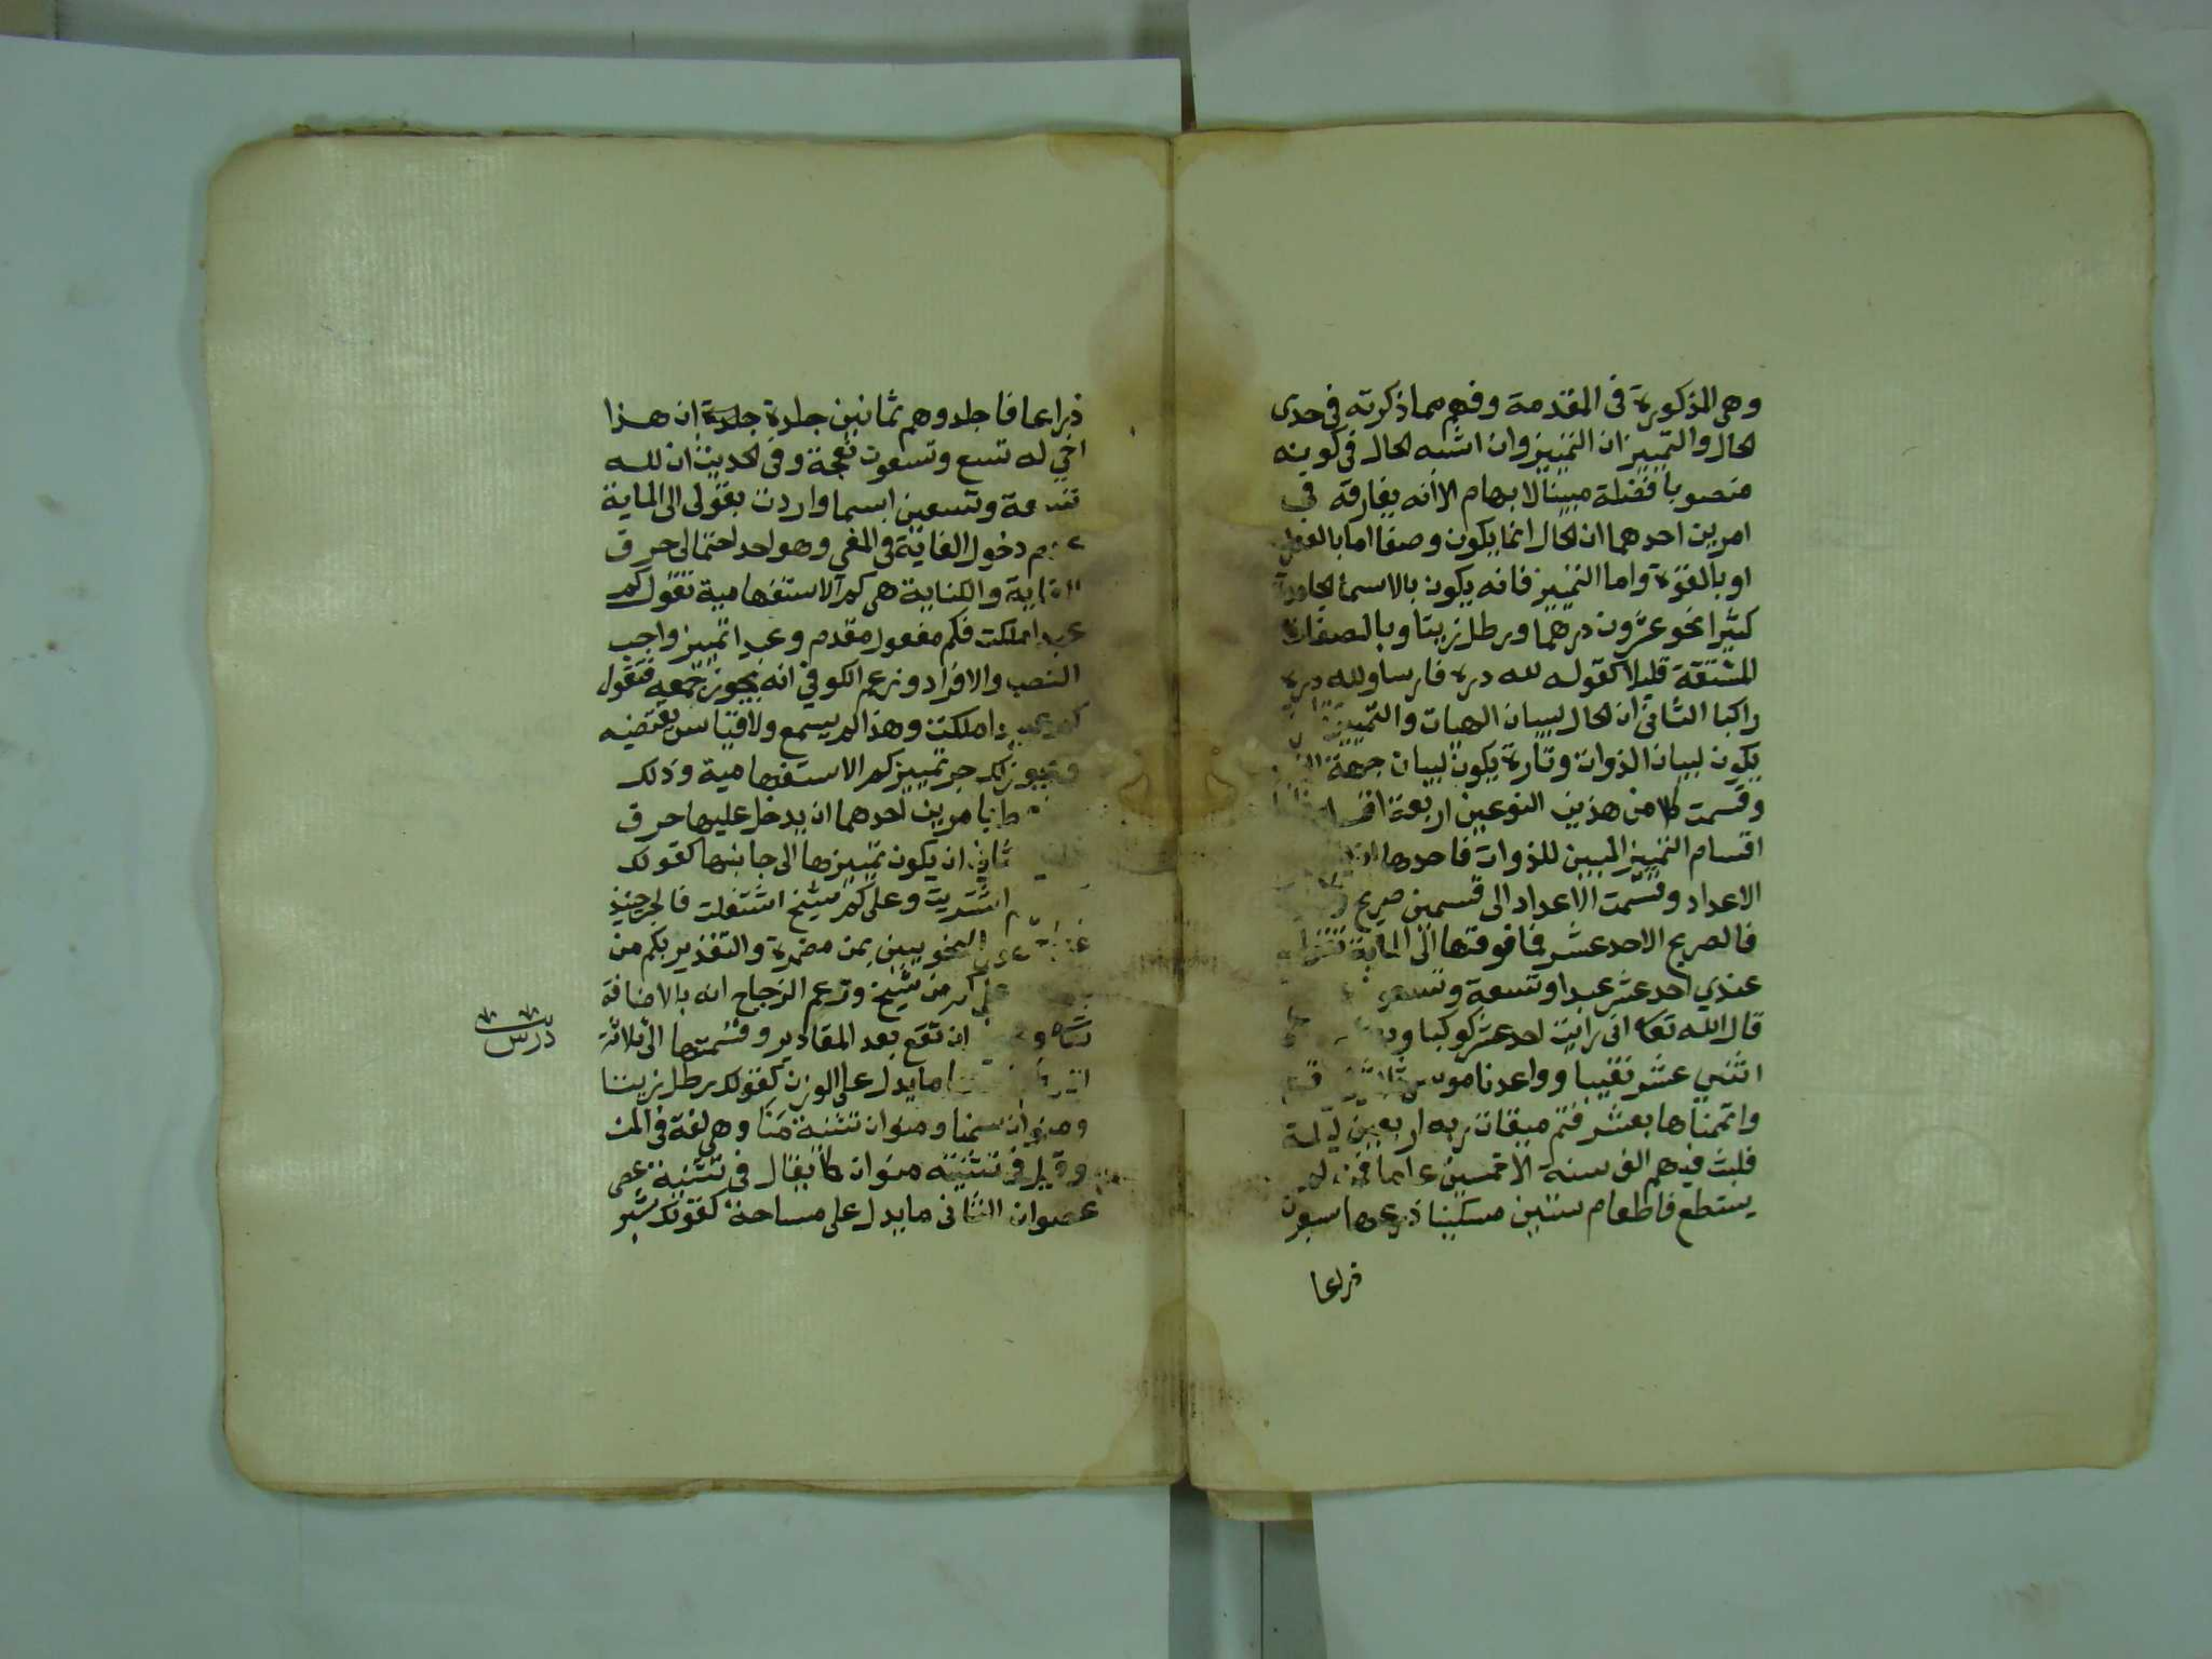 وهى المذكورة فى المقدمة وفهم مما ذكرته فى حدى
الحال والتمييز ان التمييز وان اشبه الحال فى كونه
منصوبا فضلة مبينا لابهام الا انه يفارقه فى
امرين احدهما ان الحال انما يكون وصفا اما بالفعل
او بالقوة واما التمييز فانه يكون بالاسماء الجامدة
كثيرا نحو عشرون درهما ورطل زيتا وبالصفات
المشتقة قليلا كقوله لله دره فارسا ولله دره
راكبا الثانى ان الحال لبيان الهيات والتمييز
يكون لبيان الذوات وتارة يكون لبيان جهة
وقسمت كلا من هذين النوعين اربعة
اقسام التمييز المبين للذوات فاحدها
الاعداد وقسمت الاعداد الى قسمين صريح
فالصريح الاحد عشر فما فوقها الى الماية
عندي احد عشر عبدا وتسعة
قال الله تعا انى رايت احد عشر كوكبا
اثنى عشر نقيبا وواعدنا موسى
واتممناها بعشر فتم ميقات ربه اربعين ليلة
فلبث فيهم الف سنة الا خمسين عاما
يستطع فاطعام ستين مسكينا ذرعها سبعون
ذراعا
ذراعا فاجلدوهم ثمانين جلدة جلدة ان هذا
اخي له تسع وتسعون نعجة وفى الحديث ان لله
تسعة وتسعين اسما واردت بقولى الى الماية
عدم دخول الغاية فى المغى وهو احد احتمالى حرف
الغاية والكناية هى كم الاستفهامية تقول كم
عبدا ملكت فكم مفعول مقدم وعبدا تمييز واجب
النصب والافراد وزعم الكوفي انه يجوز جمعه فتقول
كم عبيدا ملكت وهذا لم يسمع ولا قياس يقتضيه
ويجوز لك جر تمييز كم الاستفهامية وذلك
امرين احدهما ان يدخل عليها حرف
ان يكون تمييزها الى جانبها كقولك
اشتريت وعلى كم شيخ اشتغلت فالجر حينئذ
النحويين بمن مضمرة والتقدير بكم من
كم من شيخ وزعم الزجاج انه بالاضافة
ان تقع بعد المقادير وقسمتها الى ثلاثة
درس
ما يدل على الوزن كقولك رطل زيتا
ومنوان سمنا ومنوان تثنية منا وهى لغة فى المن
وقيل فى تثنيته منوان كما يقال فى تثنية عصى
عصوان الثانى ما يدل على مساحة كقولك شبر